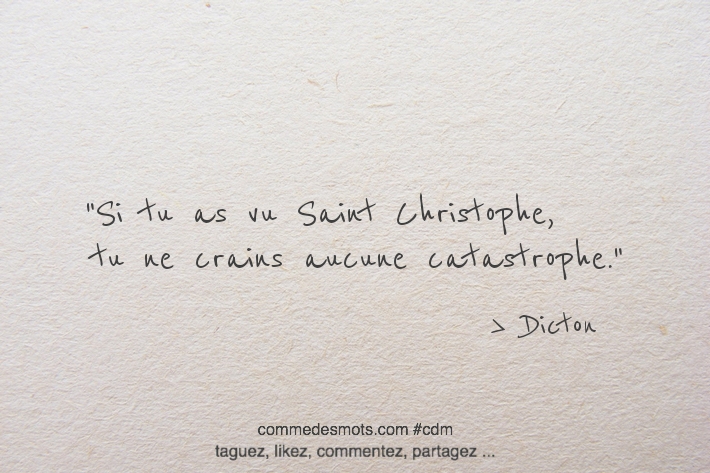 "Si tu as vu Saint Christophe,
tu ne crains aucune catastrophe."
> Dicton
commedesmots.com #cdm
taguez, likez, commentez, partagez ...